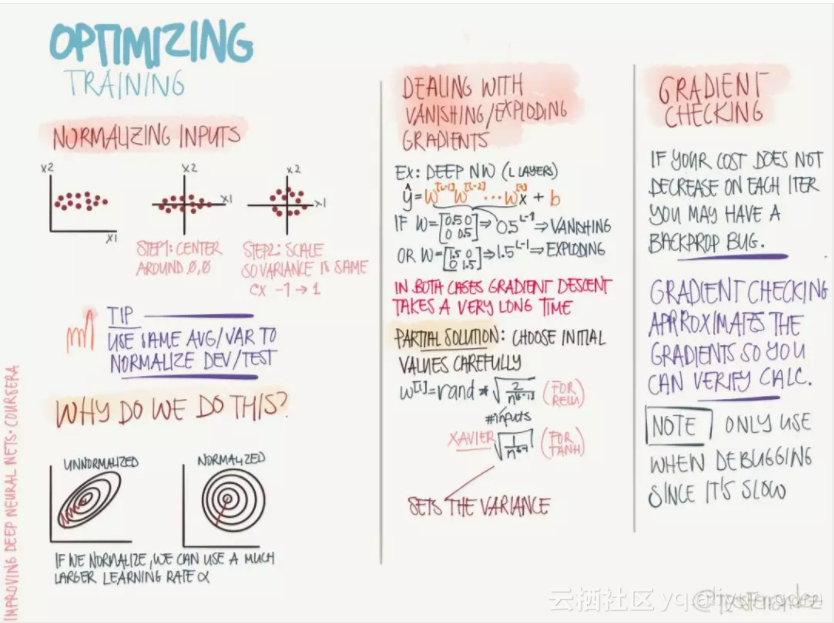 OPTIMIZING
TRAINING
NORMALIZING INPUTS
X2
X1
X2
X1
X2
X1
STEP1: CENTER
AROUND 0,0
STEP2: SCALE
SO VARIANCE IS SAME
EX -1 → 1
TIP
USE SAME AVG/VAR TO
NORMALIZE DEV/TEST
WHY DO WE DO THIS?
UNNORMALIZED
NORMALIZED
IF WE NORMALIZE, WE CAN USE A MUCH
LARGER LEARNING RATE α
DEALING WITH
VANISHING/EXPLODING
GRADIENTS
EX: DEEP NW (L LAYERS)
ŷ = W[L-1] W[L-2] ... W[1] X + b
IF W = [0.5 0 0 0.5] ⇒ 0.5^L-1 ⇒ VANISHING
OR W = [1.5 0 0 1.5] ⇒ 1.5^L-1 ⇒ EXPLODING
IN BOTH CASES GRADIENT DESCENT
TAKES A VERY LONG TIME
PARTIAL SOLUTION: CHOOSE INITIAL
VALUES CAREFULLY
W[l] = rand * √2/n[l-1] (FOR RELU)
#inputs
XAVIER √1/n[l-1] (FOR TANH)
SETS THE VARIANCE
GRADIENT
CHECKING
IF YOUR COST DOES NOT
DECREASE ON EACH ITER
YOU MAY HAVE A
BACKPROP BUG.
GRADIENT CHECKING
APPROXIMATES THE
GRADIENTS SO YOU
CAN VERIFY CALC.
NOTE ONLY USE
WHEN DEBUGGING
SINCE IT'S SLOW
IMPROVING DEEP NEURAL NETS · COURSERA
云栖社区